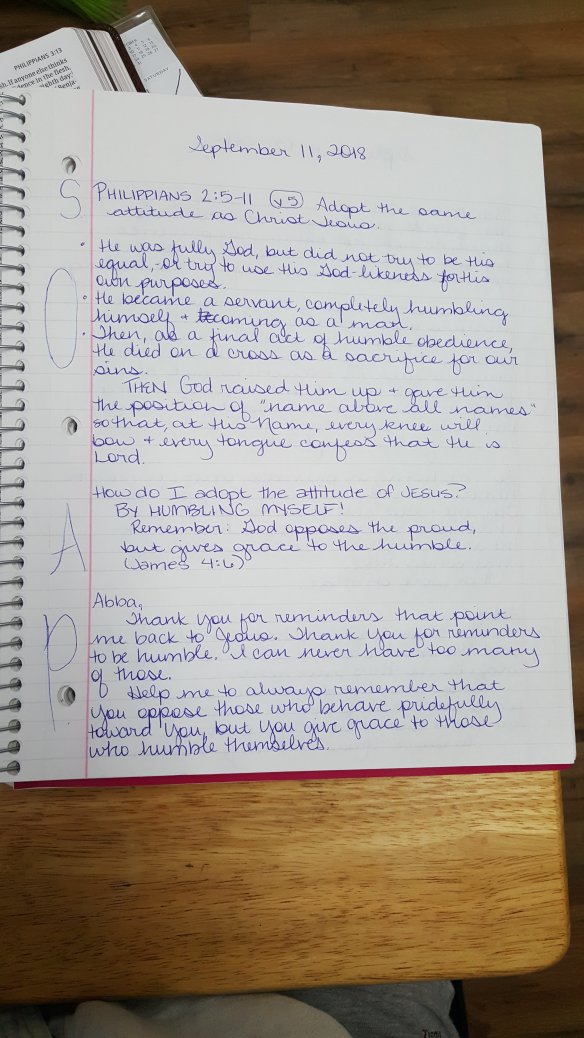 PHILIPPIANS 3:13
sh. If anyone else thinks
dence in the flesh,
ighth day;
Benja-
SATURDAY
September 11, 2018
S PHILIPPIANS 2:5-11 (v5) Adopt the same
attitude as Christ Jesus.
O
• He was fully God, but did not try to be His
equal, - or try to use His God-likeness for His
own purposes.
• He became a servant, completely humbling
himself + coming as a man.
• Then, as a final act of humble obedience,
He died on a cross as a sacrifice for our
sins.
THEN God raised Him up + gave Him
the position of "name above all names"
so that, at His Name, every knee will
bow + every tongue confess that He is
Lord.
A
How do I adopt the attitude of JESUS?
BY HUMBLING MYSELF!
Remember: God opposes the proud,
but gives grace to the humble.
(James 4:6)
P
Abba,
Thank You for reminders that point
me back to Jesus. Thank You for reminders
to be humble. I can never have too many
of those.
Help me to always remember that
You oppose those who behave pridefully
toward You, but You give grace to those
who humble themselves.